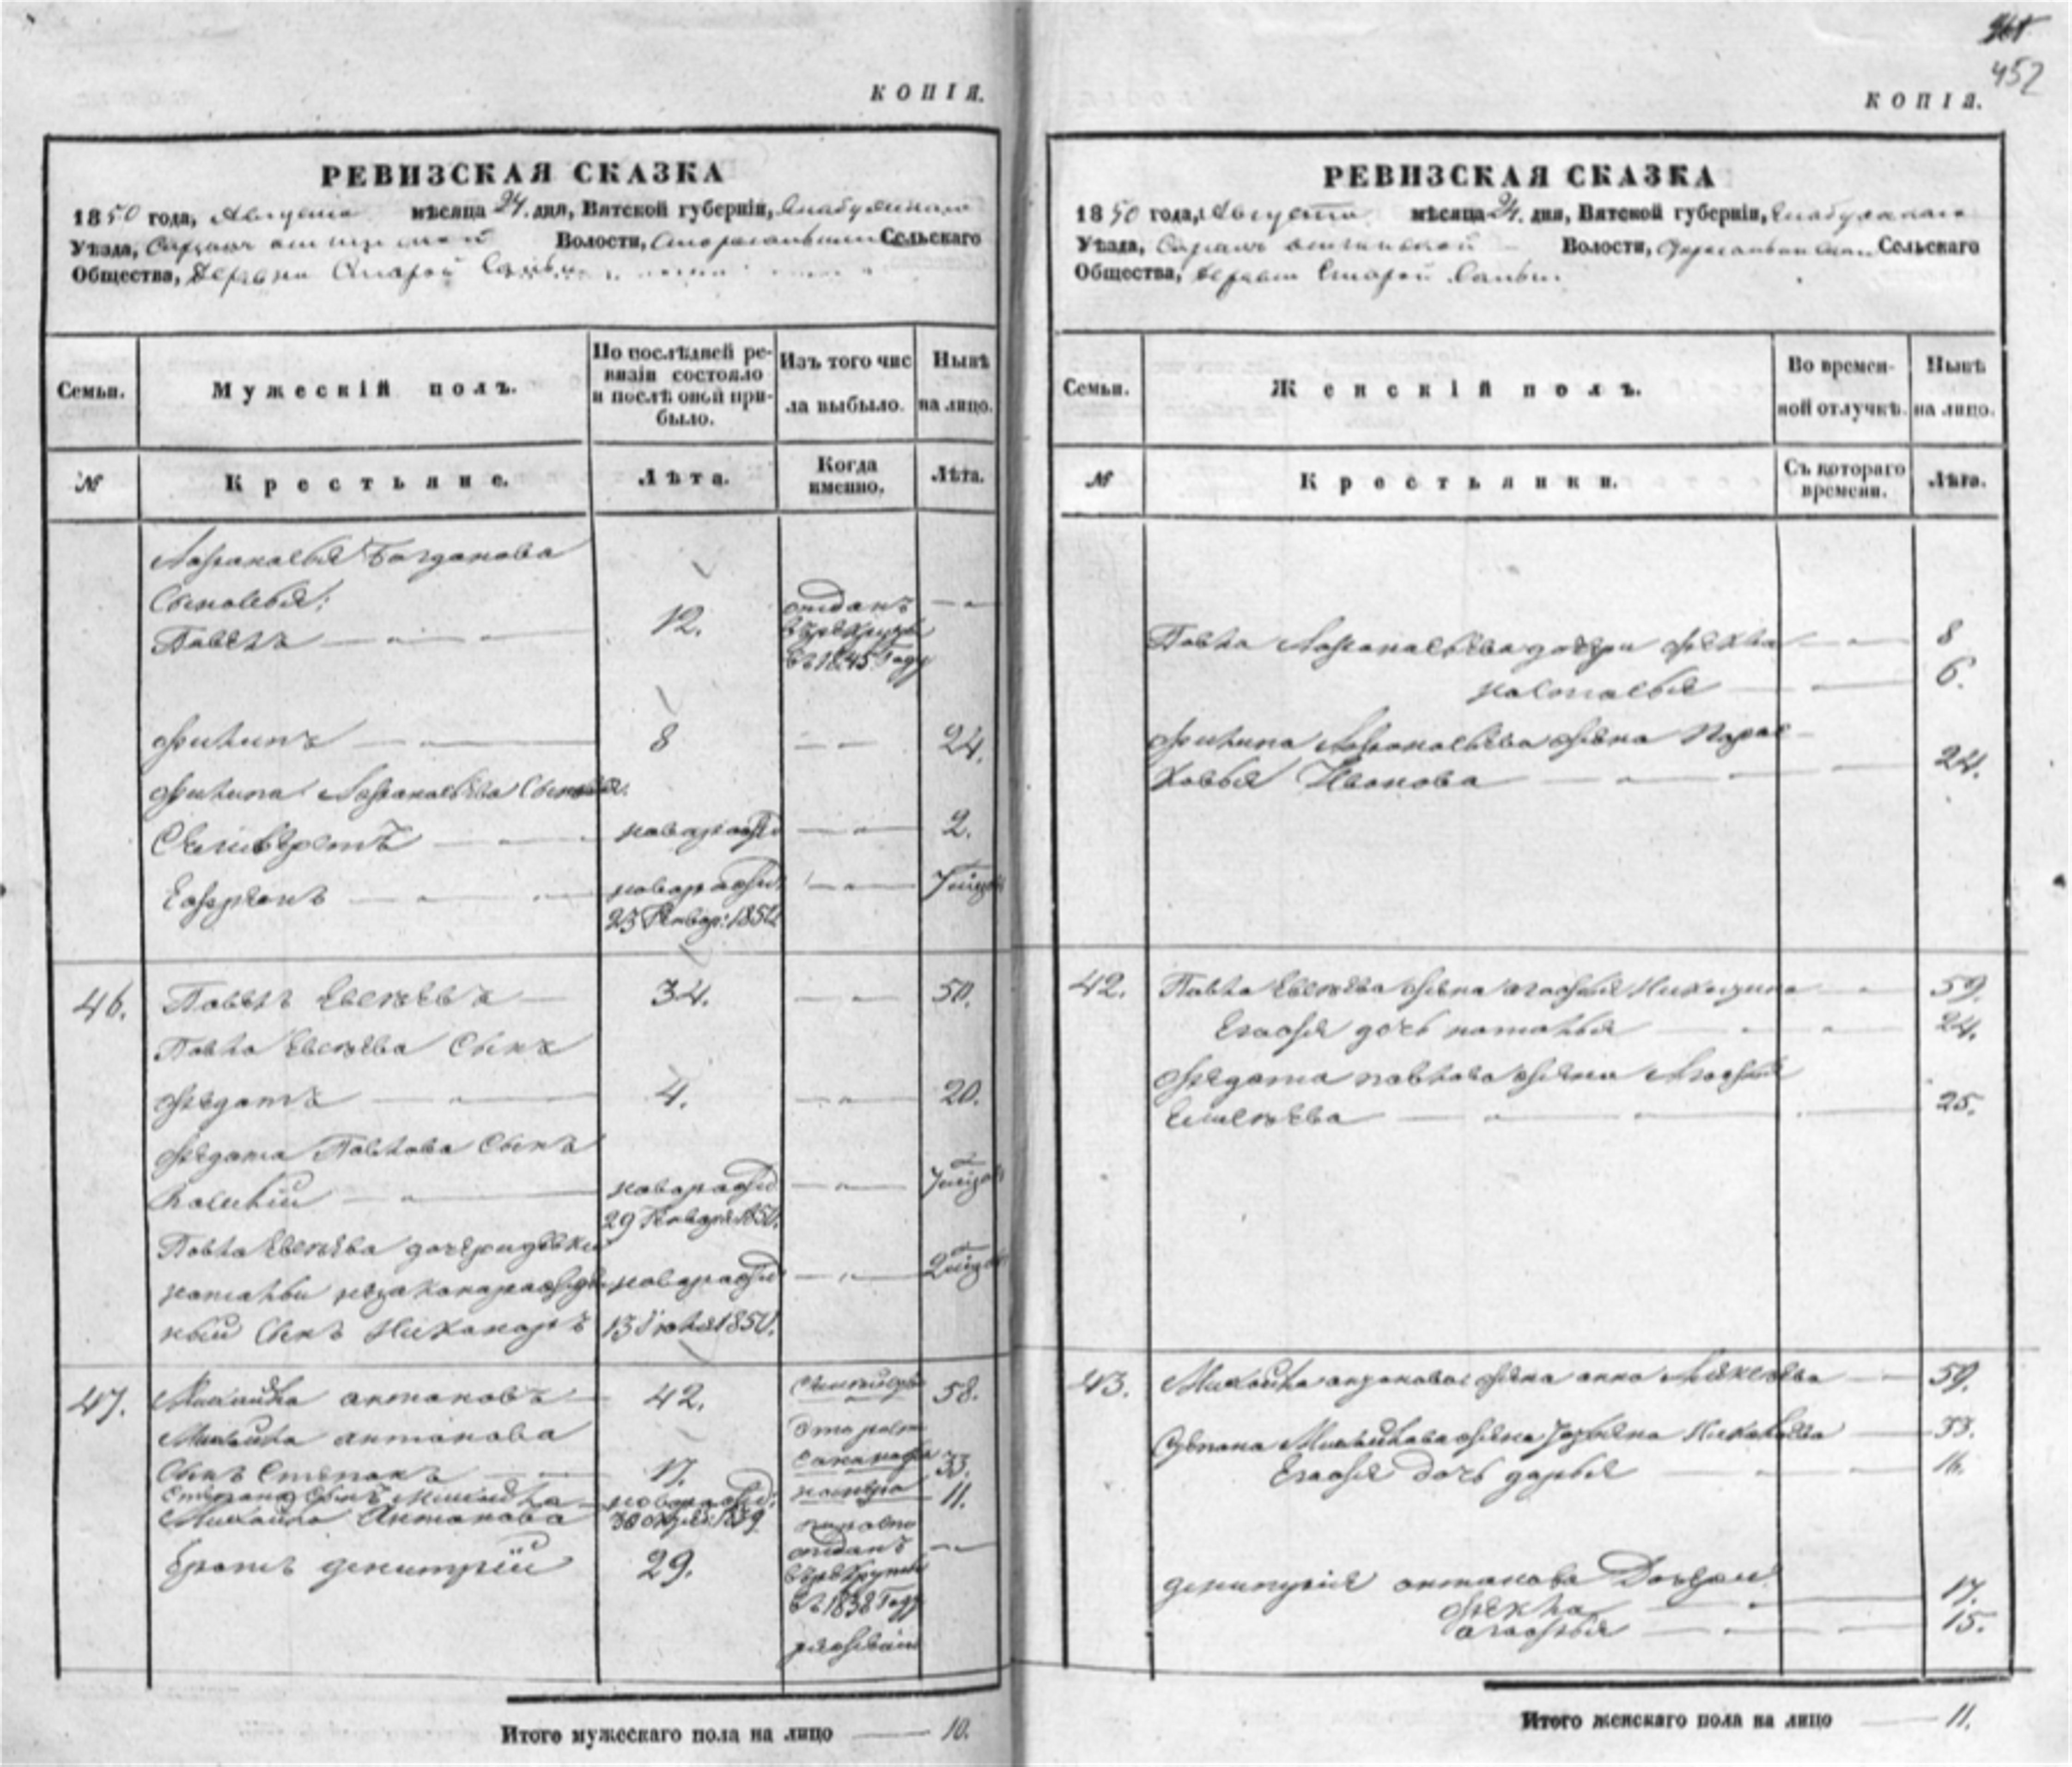 452
КОПІЯ.
РЕВИЗСКАЯ СКАЗКА
1850 года, Августа мѣсяца 24. дня, Вятской губерніи, Елабужскаго
Уѣзда, Волости, Сельскаго
Общества, Деревни Старой
Семьи.
Мужескій полъ.
По послѣдней ре-
визіи состояло
и послѣ оной при-
было.
Изъ того чис
ла выбыло.
Нынѣ
на лицо.
№
Крестьяне.
Лѣта.
Когда
именно.
Лѣта.
Афанасья Богданова
Сыновья:
Павелъ 12. отданъ
въ рекруты
въ 1845 Году
Филипъ 8 24.
Филипа Афанасьева Сыновья.
Селиверстъ новорожд 2.
Ефремъ новорожд.
23 Январ: 1850
46. Павелъ Евсѣевъ 34. 50.
Павла Евсѣева Сынъ
Федотъ 4. 20.
Федота Павлова Сынъ
новорожд
29 Января 1850.
Павла Евсѣева дочери дѣвки
Натальи незаконорожден новорожд
ный Сынъ Никаноръ 13 1850.
47. Михайла Антоновъ 42. 58.
Михайла Антонова
Сынъ Степанъ 17. 33.
Степана Сынъ новорожд: 11.
Михайла Антонова
братъ Димитрій 29. отданъ
въ рекруты
въ 1838 Году
Итого мужескаго пола на лицо 10.
КОПІЯ.
РЕВИЗСКАЯ СКАЗКА
1850 года, Августа мѣсяца 24. дня, Вятской губерніи, Елабужскаго
Уѣзда, Волости, Сельскаго
Общества, Деревни Старой
Семьи.
Женскій полъ.
Во времен-
ной отлучкѣ.
Нынѣ
на лицо.
№
Крестьянки.
Съ котораго
времени.
Лѣта.
Павла Афанасьева дочери Фекла 8
Настасья 6.
Филипа Афанасьева жена Парас-
ковья Иванова 24.
42. Павла Евсѣева жена Агафья Никитина 59.
Егожъ дочь Наталья 24.
Федота Павлова жена Агафья
Елисѣева 25.
43. Михайла Антонова жена Анна Алексѣева 59.
Степана Михайлова жена 33.
Егожъ Дочь Дарья 16.
Димитрія Антонова Дочери
Фекла 17.
Агафья 15.
Итого женскаго пола на лицо 11.